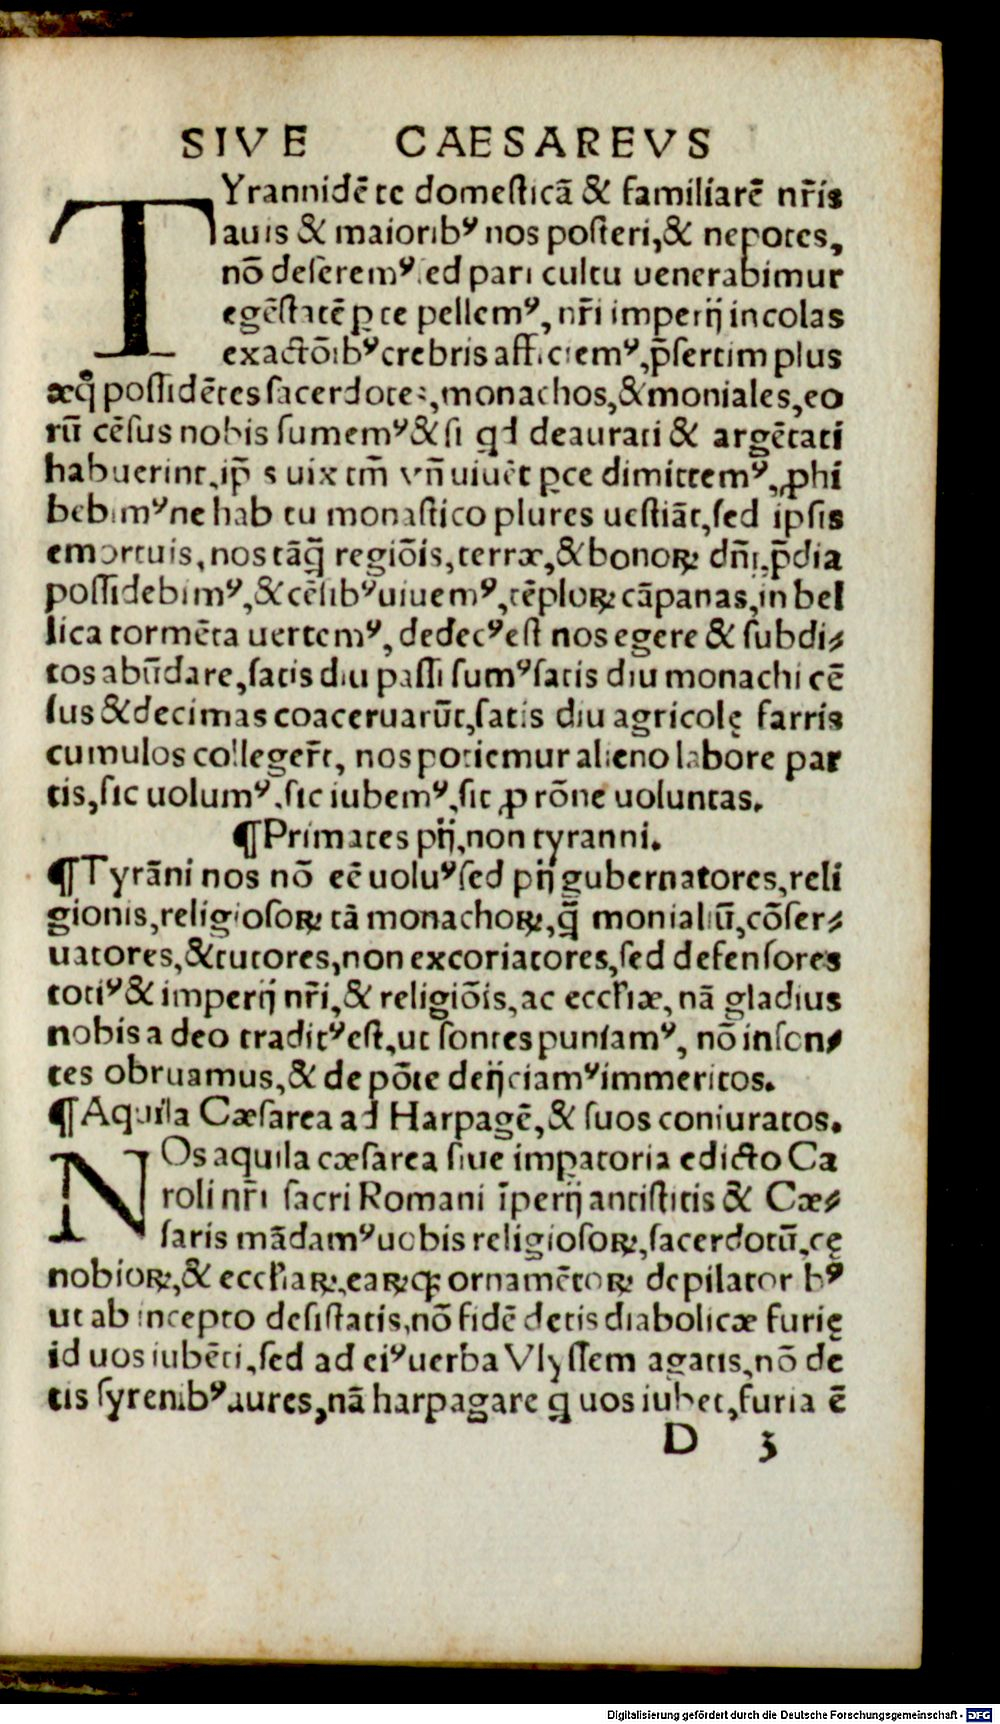 SIVE CAESAREVS
TYrannidē te domesticā & familiarē nr̄is
auis & maiorib⁹ nos posteri, & nepotes,
nō deserem⁹ sed pari cultu uenerabimur
egēstatē ꝑ te pellem⁹, nr̄i imperij incolas
exactōib⁹ crebris afficiem⁹, p̄sertim plus
æq̄ possidētes sacerdotes, monachos, & moniales, eo
rū cēsus nobis sumem⁹ & si qd deaurati & argētati
habuerint, ip̄s uix tm̄ vn̄ uiuēt ꝑce dimittem⁹, ꝓhi
bebim⁹ ne habitu monastico plures uestiāt, sed ipsis
emortuis, nos tāq̄ regiōis, terræ, & bonoꝝ dn̄i, p̄dia
possidebim⁹, & cēsib⁹ uiuem⁹, tēploꝝ cāpanas, in bel
lica tormēta uertem⁹, dedec⁹ est nos egere & subdi⸗
tos abūdare, satis diu passi sum⁹ satis diu monachi cē
sus & decimas coaceruarūt, satis diu agricolę farris
cumulos colleger̄t, nos potiemur alieno labore par
tis, sic uolum⁹, sic iubem⁹, sit ꝓ rōne uoluntas.
¶Primates pij, non tyranni.
¶Tyrāni nos nō eē uolu⁹ sed pij gubernatores, reli
gionis, religiosoꝝ tā monachoꝝ, q̄ monialiū, cōser⸗
uatores, & tutores, non excoriatores, sed defensores
toti⁹ & imperij nr̄i, & religiōis, ac eccl̄iæ, nā gladius
nobis a deo tradit⁹ est, ut sontes puniam⁹, nō inson⸗
tes obruamus, & de pōte deijciam⁹ immeritos.
¶Aquila Cæsarea ad Harpagē, & suos coniuratos.
NOs aquila cæsarea siue imꝑatoria edicto Ca
roli nr̄i sacri Romani īperij antistitis & Cæ⸗
saris mādam⁹ uobis religiosoꝝ, sacerdotū, cę
nobioꝝ, & eccl̄iaꝝ, eaꝝqꝫ ornamētoꝝ depilatorib⁹
ut ab incepto desistatis, nō fidē detis diabolicæ furię
id uos iubēti, sed ad ei⁹ uerba Vlyssem agatis, nō de
tis syrenib⁹ aures, nā harpagare q uos iubet, furia ē
D 3
Digitalisierung gefördert durch die Deutsche Forschungsgemeinschaft - DFG